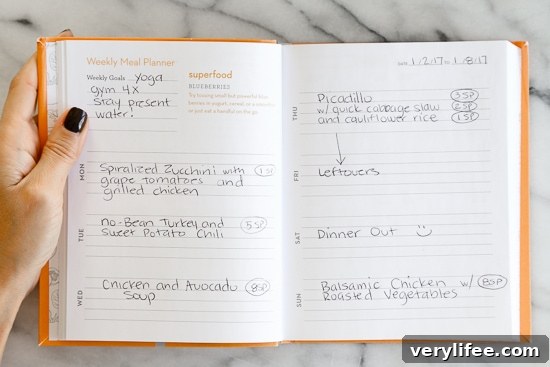 Weekly Meal Planner
Weekly Goals yoga
gym 4x
stay present
water!
superfood
BLUEBERRIES
MON
Spiralized Zucchini with 1 SP
grape tomatoes and
grilled chicken
TUE
no-Bean Turkey and 5 SP
Sweet Potato Chili
WED
Chicken and Avocado 8SP
Soup
DATE 1/2/17 TO 1/8/17
THU
Picadillo 3 SP
w/ quick cabbage slaw 2 SP
and cauliflower rice 1 SP
FRI
Leftovers
SAT
Dinner Out
SUN
Balsamic Chicken w/ 8SP
Roasted Vegetables
verylifee.com